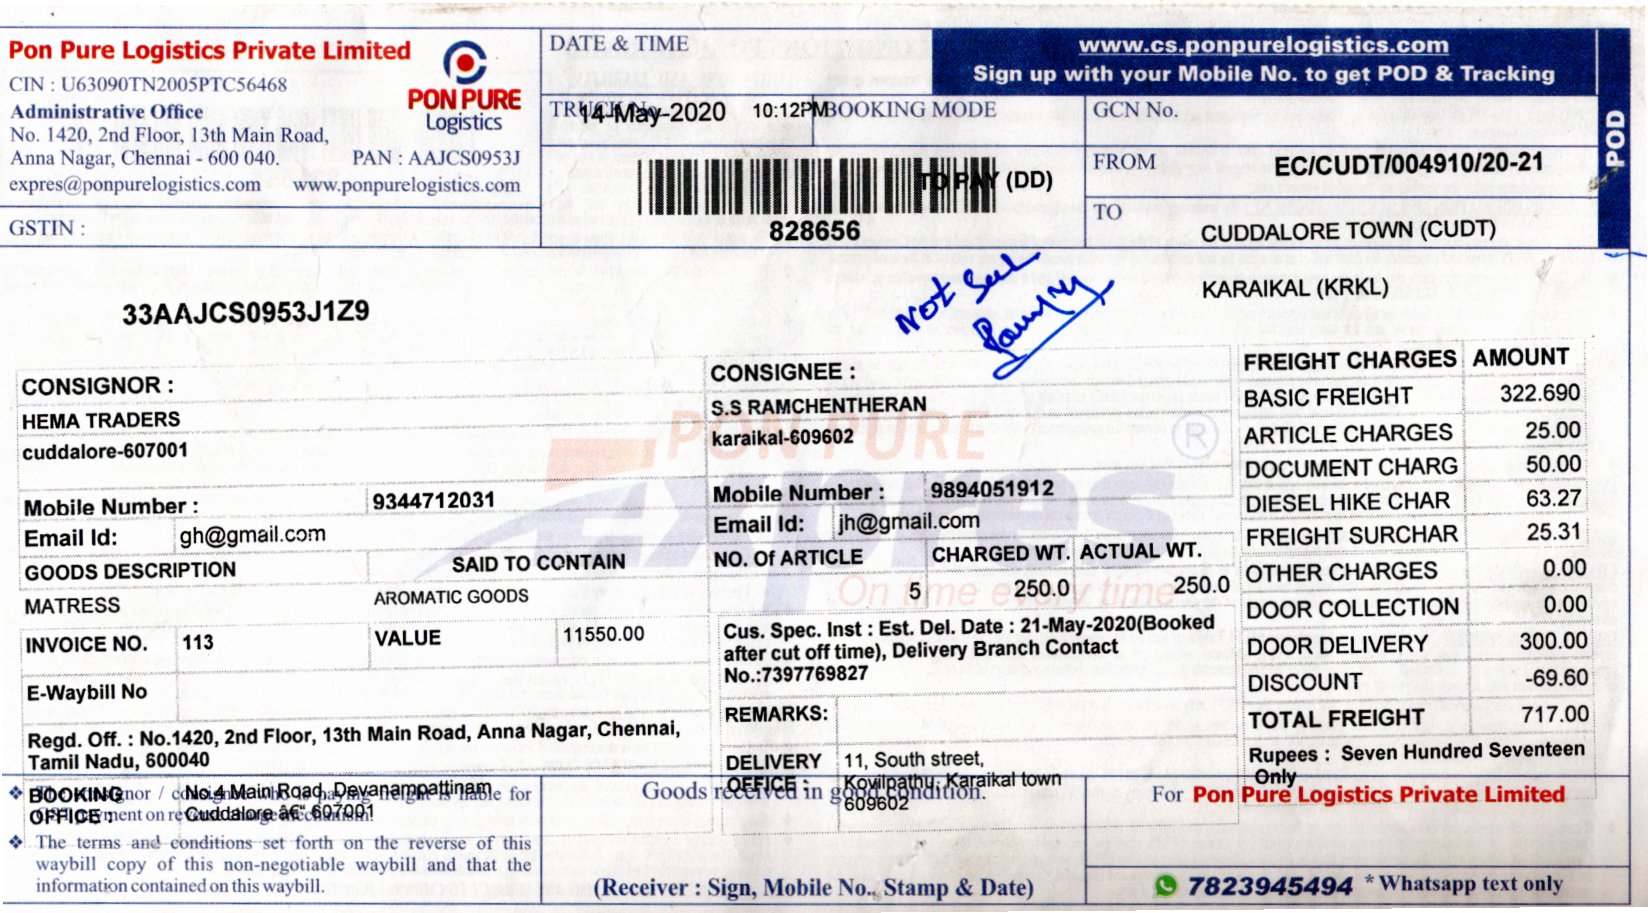 Pon Pure Logistics Private Limited
CIN : U63090TN2005PTC56468
Administrative Office
No. 1420, 2nd Floor, 13th Main Road,
Anna Nagar, Chennai - 600 040. PAN : AAJCS0953J
expres@ponpurelogistics.com www.ponpurelogistics.com
GSTIN :
PON PURE
Logistics
DATE & TIME
www.cs.ponpurelogistics.com
Sign up with your Mobile No. to get POD & Tracking
POD
TRUCK No.
14-May-2020 10:12PM
BOOKING MODE
GCN No.
FROM
EC/CUDT/004910/20-21
TO PAY (DD)
828656
TO
CUDDALORE TOWN (CUDT)
KARAIKAL (KRKL)
33AAJCS0953J1Z9
Not
CONSIGNOR :
HEMA TRADERS
cuddalore-607001
Mobile Number : 9344712031
Email Id: gh@gmail.com
CONSIGNEE :
S.S RAMCHENTHERAN
karaikal-609602
Mobile Number : 9894051912
Email Id: jh@gmail.com
PON PURE ®
Expres
On time every time
GOODS DESCRIPTION SAID TO CONTAIN NO. Of ARTICLE CHARGED WT. ACTUAL WT.
MATRESS AROMATIC GOODS 5 250.0 250.0
INVOICE NO. 113 VALUE 11550.00
E-Waybill No
Regd. Off. : No.1420, 2nd Floor, 13th Main Road, Anna Nagar, Chennai,
Tamil Nadu, 600040
BOOKING OFFICE : No.4 Main Road, Devanampattinam
Cuddalore â€“ 607001
Cus. Spec. Inst : Est. Del. Date : 21-May-2020(Booked
after cut off time), Delivery Branch Contact
No.:7397769827
REMARKS:
DELIVERY OFFICE : 11, South street,
Kovilpathu, Karaikal town
609602
FREIGHT CHARGES AMOUNT
BASIC FREIGHT 322.690
ARTICLE CHARGES 25.00
DOCUMENT CHARG 50.00
DIESEL HIKE CHAR 63.27
FREIGHT SURCHAR 25.31
OTHER CHARGES 0.00
DOOR COLLECTION 0.00
DOOR DELIVERY 300.00
DISCOUNT -69.60
TOTAL FREIGHT 717.00
Rupees : Seven Hundred Seventeen
Only
❖ The consignor / paying freight is liable for
payment on reverse charge mechanism.
❖ The terms and conditions set forth on the reverse of this
waybill copy of this non-negotiable waybill and that the
information contained on this waybill.
Goods received in good condition.
(Receiver : Sign, Mobile No., Stamp & Date)
For Pon Pure Logistics Private Limited
7823945494 * Whatsapp text only